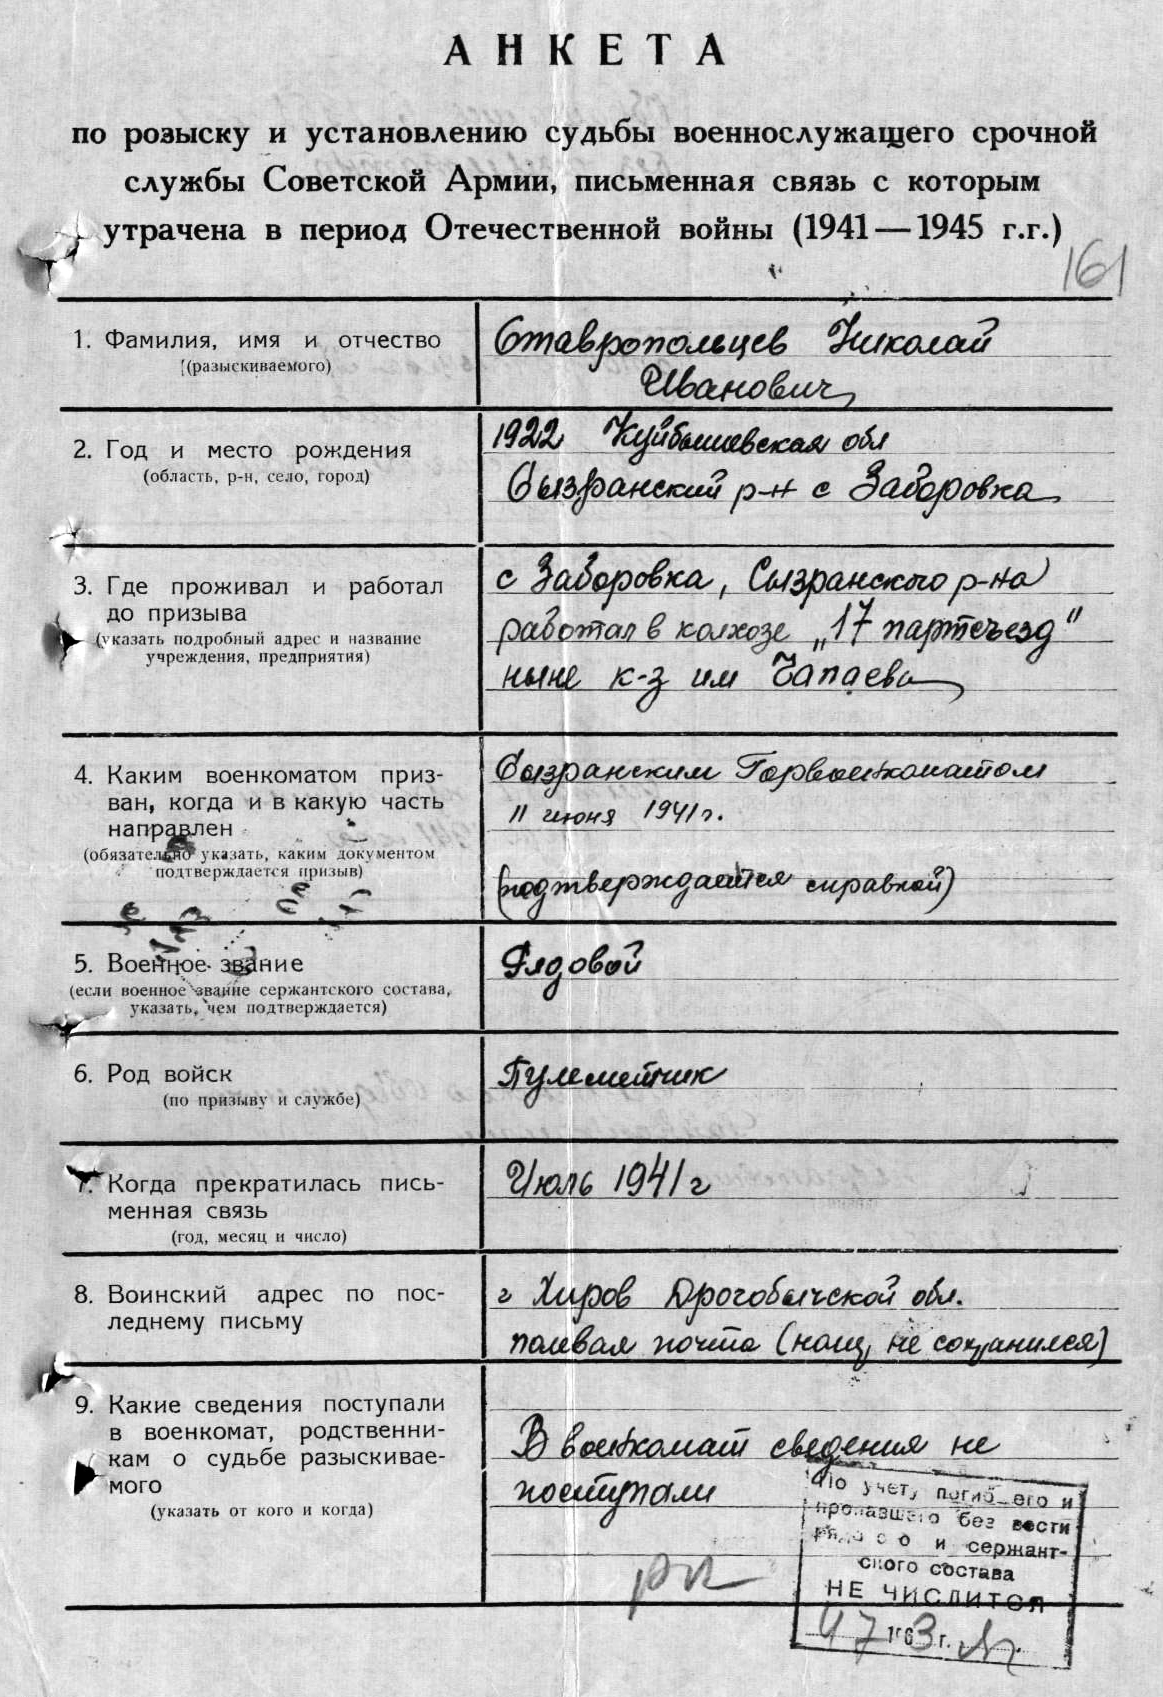 АНКЕТА
по розыску и установлению судьбы военнослужащего срочной
службы Советской Армии, письменная связь с которым
утрачена в период Отечественной войны (1941—1945 г.г.)
161
1. Фамилия, имя и отчество
(разыскиваемого)
Ставропольцев Николай
Иванович
2. Год и место рождения
(область, р-н, село, город)
1922 Куйбышевская обл
Сызранский р-н с Заборовка
3. Где проживал и работал
до призыва
(указать подробный адрес и название
учреждения, предприятия)
с Заборовка, Сызранского р-на
работал в колхозе „17 партсъезд"
ныне к-з им Чапаева
4. Каким военкоматом приз-
ван, когда и в какую часть
направлен
(обязательно указать, каким документом
подтверждается призыв)
Сызранским Горвоенкоматом
11 июня 1941 г.
(подтверждается справкой)
5. Военное звание
(если военное звание сержантского состава,
указать, чем подтверждается)
Рядовой
6. Род войск
(по призыву и службе)
Пулеметчик
7. Когда прекратилась пись-
менная связь
(год, месяц и число)
Июль 1941 г
8. Воинский адрес по пос-
леднему письму
г Хиров Дрогобычской обл.
полевая почта (не сохранился)
9. Какие сведения поступали
в военкомат, родственни-
кам о судьбе разыскивае-
мого
(указать от кого и когда)
В военкомат сведения не
поступали
По учету погибшего и
пропавшего без вести
рядового и сержант-
ского состава
НЕ ЧИСЛИТСЯ
1963 г.